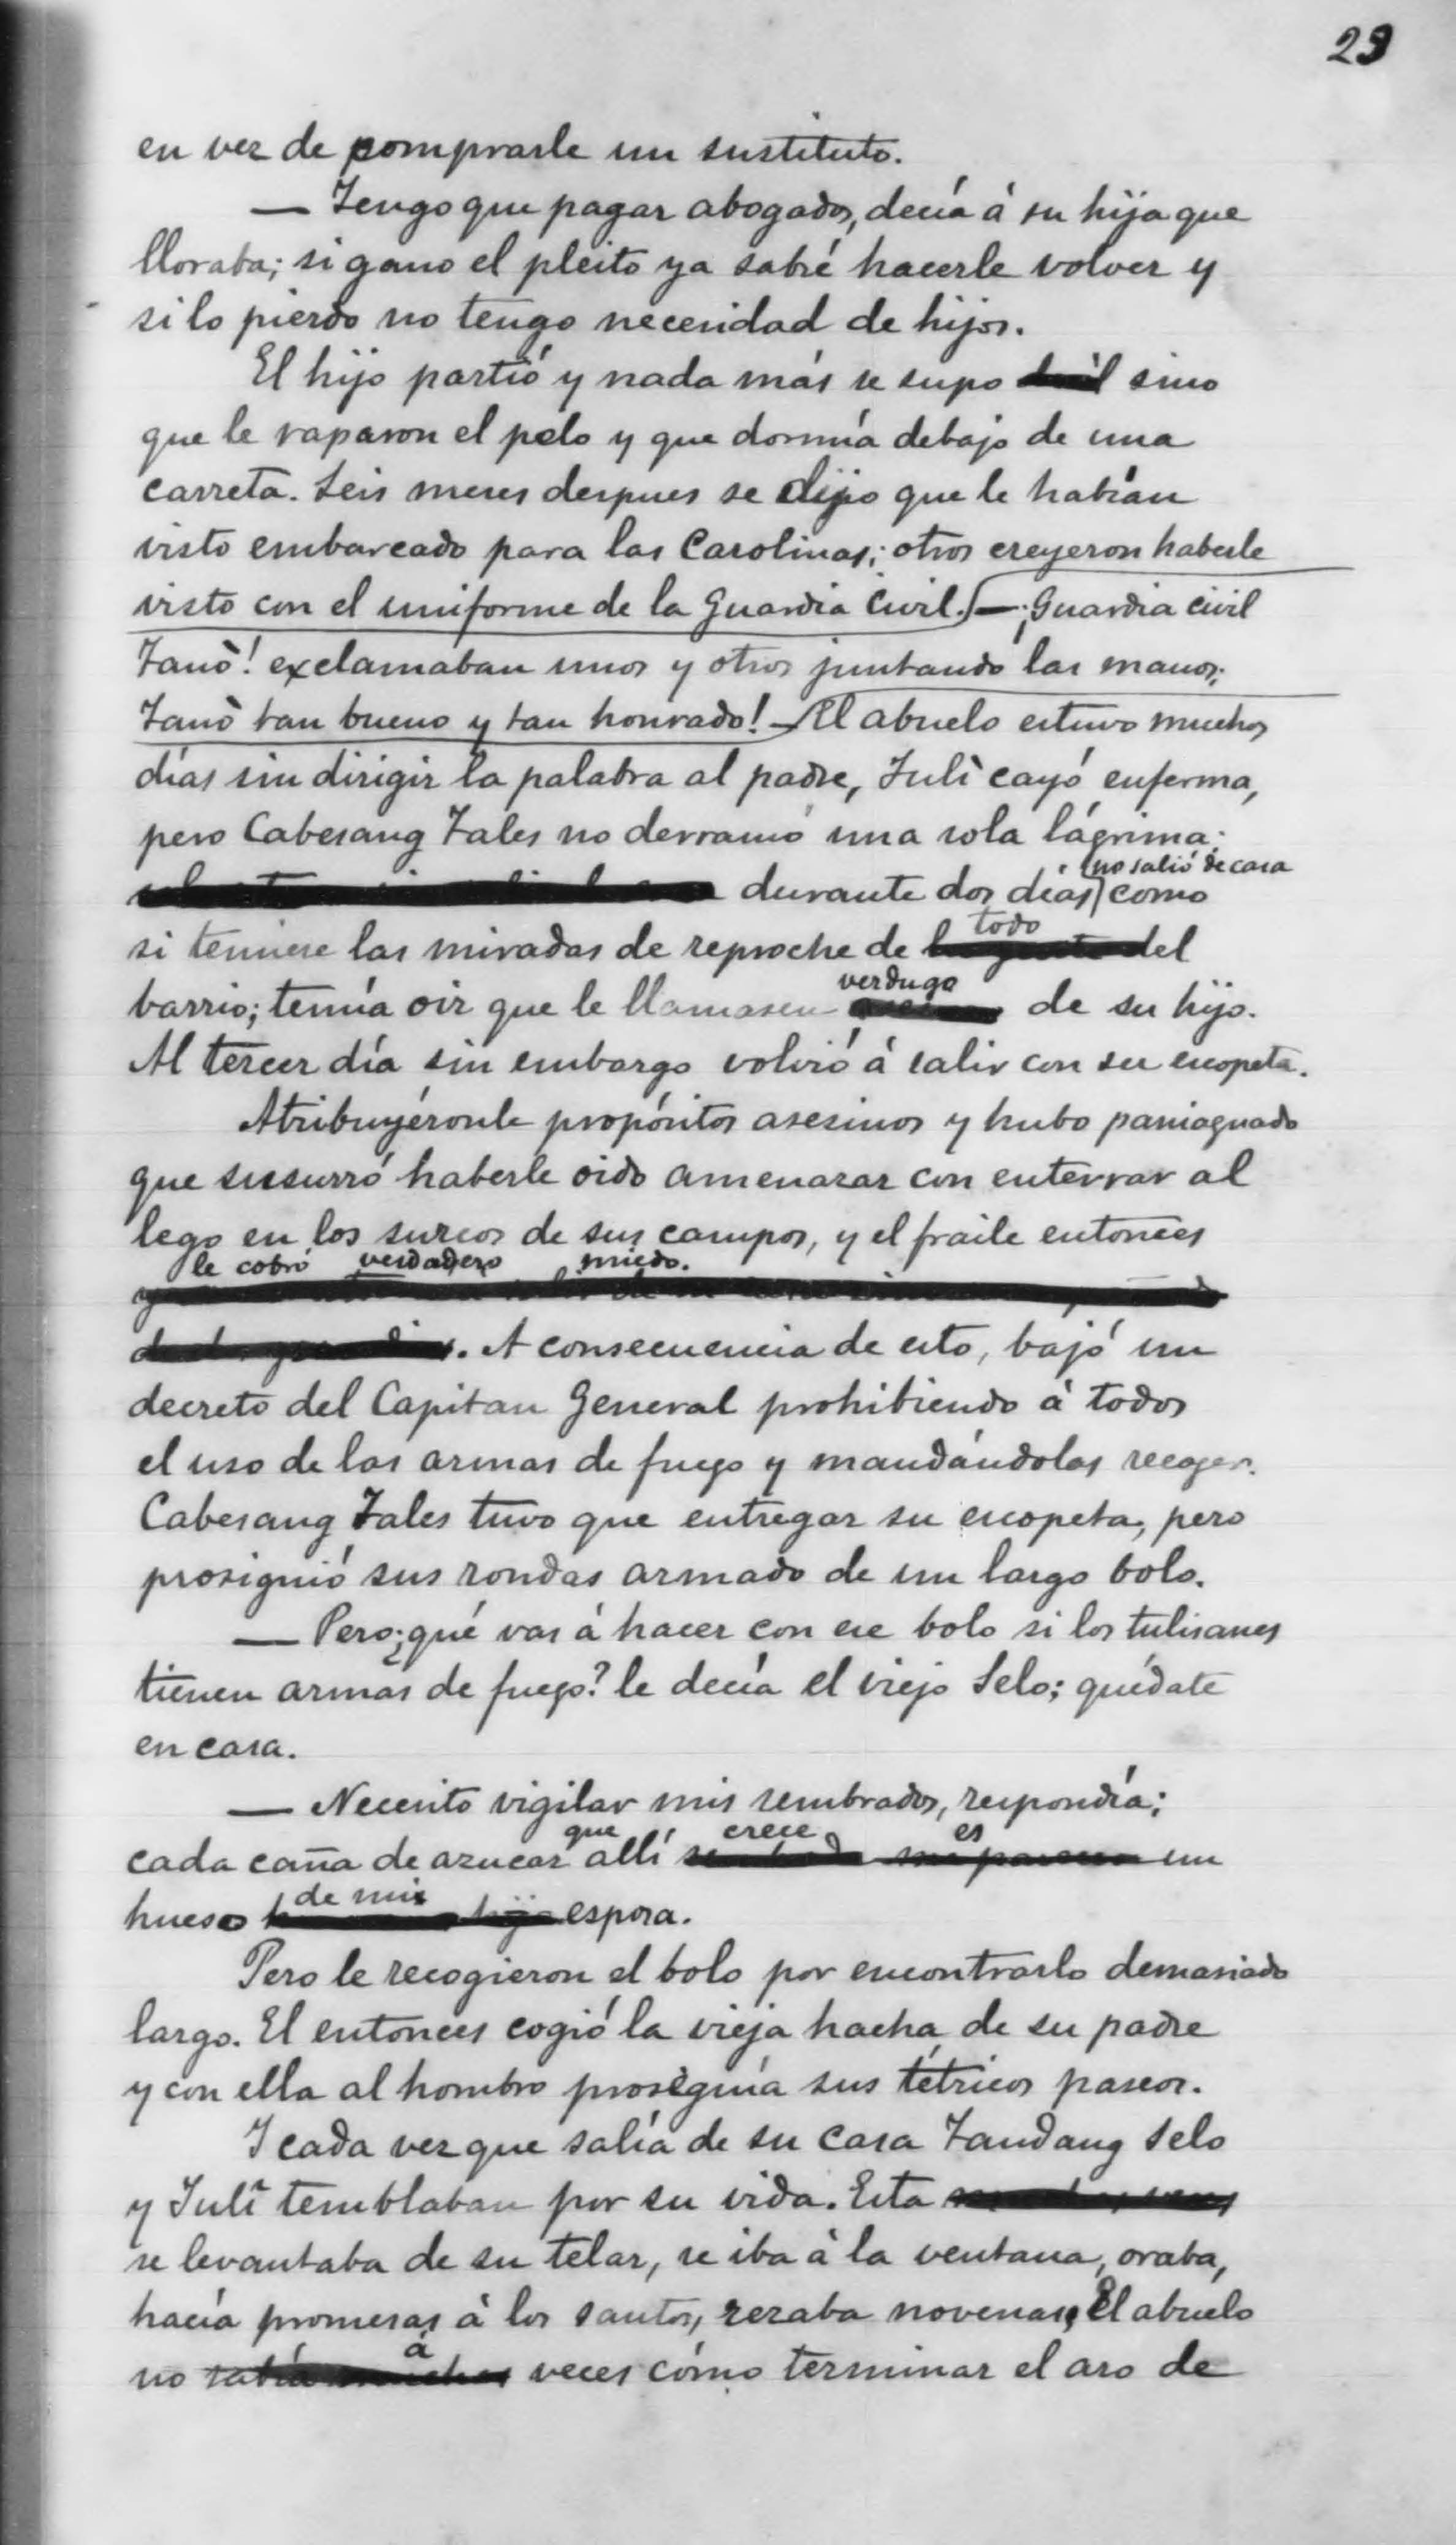 29
en vez de comprarle un sustituto.
— Tengo que pagar abogados, decía á su hija que
lloraba; si gano el pleito ya sabré hacerle volver y
si lo pierdo no tengo necesidad de hijos.
El hijo partió y nada más se supo sino
que le raparon el pelo y que dormía debajo de una
carreta. Seis meses despues se dijo que le habían
visto embarcado para las Carolinas; otros creyeron haberle
visto con el uniforme de la Guardia Civil. — ¡Guardia civil
Tanò! exclamaban unos y otros juntando las manos;
Tanò tan bueno y tan honrado! — El abuelo estuvo muchos
días sin dirigir la palabra al padre, Julî cayó enferma,
pero Cabesang Tales no derramó una sola lágrima;
no salió de casa
durante dos días como
todo
si temiese las miradas de reproche de del
verdugo
barrio; temía oir que le llamasen de su hijo.
Al tercer día sin embargo volvió á salir con su escopeta.
Atribuyéronle propósitos asesinos y hubo paniaguado
que susurró haberle oido amenazar con enterrar al
lego en los surcos de sus campos, y el fraile entonces
le cobró verdadero miedo.
. A consecuencia de esto, bajó un
decreto del Capitan General prohibiendo á todos
el uso de las armas de fuego y mandándolas recoger.
Cabesang Tales tuvo que entregar su escopeta, pero
prosiguió sus rondas armado de un largo bolo.
— Pero ¿qué vas á hacer con ese bolo si los tulisanes
tienen armas de fuego? le decía el viejo Selo; quédate
en casa.
— Necesito vigilar mis sembrados, respondía;
que crece es
cada caña de azucar allí un
de mi
hueso espora.
Pero le recogieron el bolo por encontrarlo demasiado
largo. El entonces cogió la vieja hacha de su padre
y con ella al hombro proseguía sus tétricos paseos.
I cada vez que salía de su casa Tandang Selo
y Julî temblaban por su vida. Esta
se levantaba de su telar, se iba á la ventana, oraba,
hacía promesas á los santos, rezaba novenas. El abuelo
á
no sabía veces cómo terminar el aro de